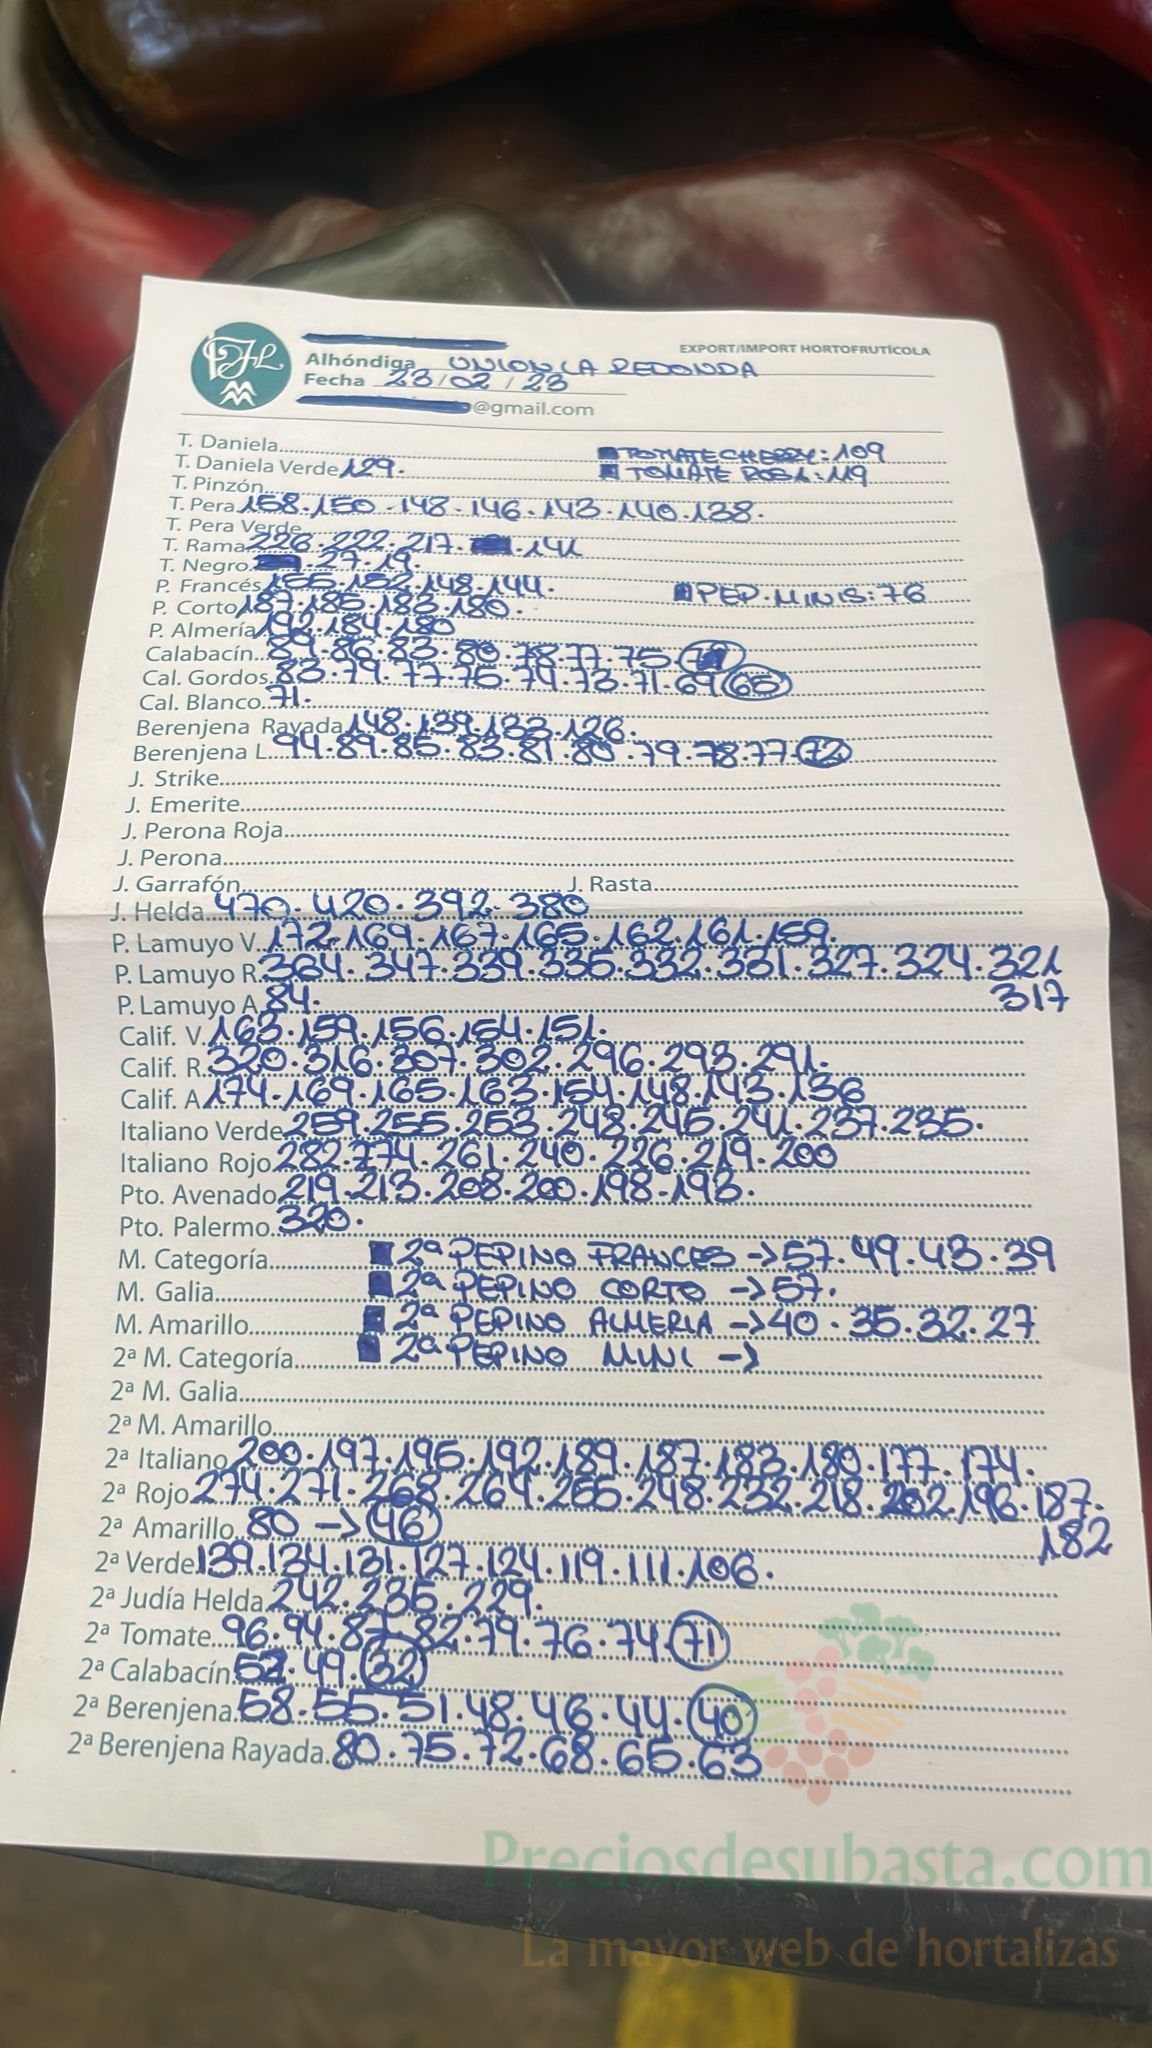 EXPORT/IMPORT HORTOFRUTÍCOLA
Alhóndiga UNION LA REDONDA
Fecha 23/02/23
@gmail.com
T. Daniela
TOMATE CHERRY: 109
T. Daniela Verde 129.
TOMATE ROSA: 119
T. Pinzón
T. Pera 158.150.148.146.143.140.138.
T. Pera Verde
T. Rama 226.222.217. .141
T. Negro .27.19.
P. Francés 155.152.148.144.
PEP. MINIS: 76
P. Corto 187.185.183.180.
P. Almería 192.184.180
Calabacín 89.86.83.80.78.77.75
Cal. Gordos 83.79.77.75.74.73.71.69 65
Cal. Blanco 71.
Berenjena Rayada 148.139.133.126.
Berenjena L. 94.89.85.83.81.80.79.78.77 72
J. Strike
J. Emerite
J. Perona Roja
J. Perona
J. Garrafón J. Rasta
J. Helda 470.420.392.380
P. Lamuyo V. 172.169.167.165.162.161.159.
P. Lamuyo R. 364.347.339.335.332.331.327.324.321
317
P. Lamuyo A. 84.
Calif. V. 163.159.156.154.151.
Calif. R. 320.316.307.302.296.293.291.
Calif. A 174.169.165.163.154.148.143.136
Italiano Verde 259.255.253.248.245.241.237.235.
Italiano Rojo 282.274.261.240.226.219.200
Pto. Avenado 219.213.208.200.198.193.
Pto. Palermo 320.
M. Categoría 2ª PEPINO FRANCES -> 57.49.43.39
M. Galia 2ª PEPINO CORTO -> 57.
M. Amarillo 2ª PEPINO ALMERIA -> 40.35.32.27
2ª M. Categoría 2ª PEPINO MINI ->
2ª M. Galia
2ª M. Amarillo
2ª Italiano 200.197.195.192.189.187.183.180.177.174.
2ª Rojo 274.271.268.264.255.248.232.218.202.196.187.
182
2ª Amarillo 80 -> 46
2ª Verde 139.134.131.127.124.119.111.106.
2ª Judía Helda 242.235.229.
2ª Tomate 96.94.87.82.79.76.74.71
2ª Calabacín 52.49.32
2ª Berenjena 58.55.51.48.46.44.40
2ª Berenjena Rayada 80.75.72.68.65.63
Preciosdesubasta.com
La mayor web de hortalizas